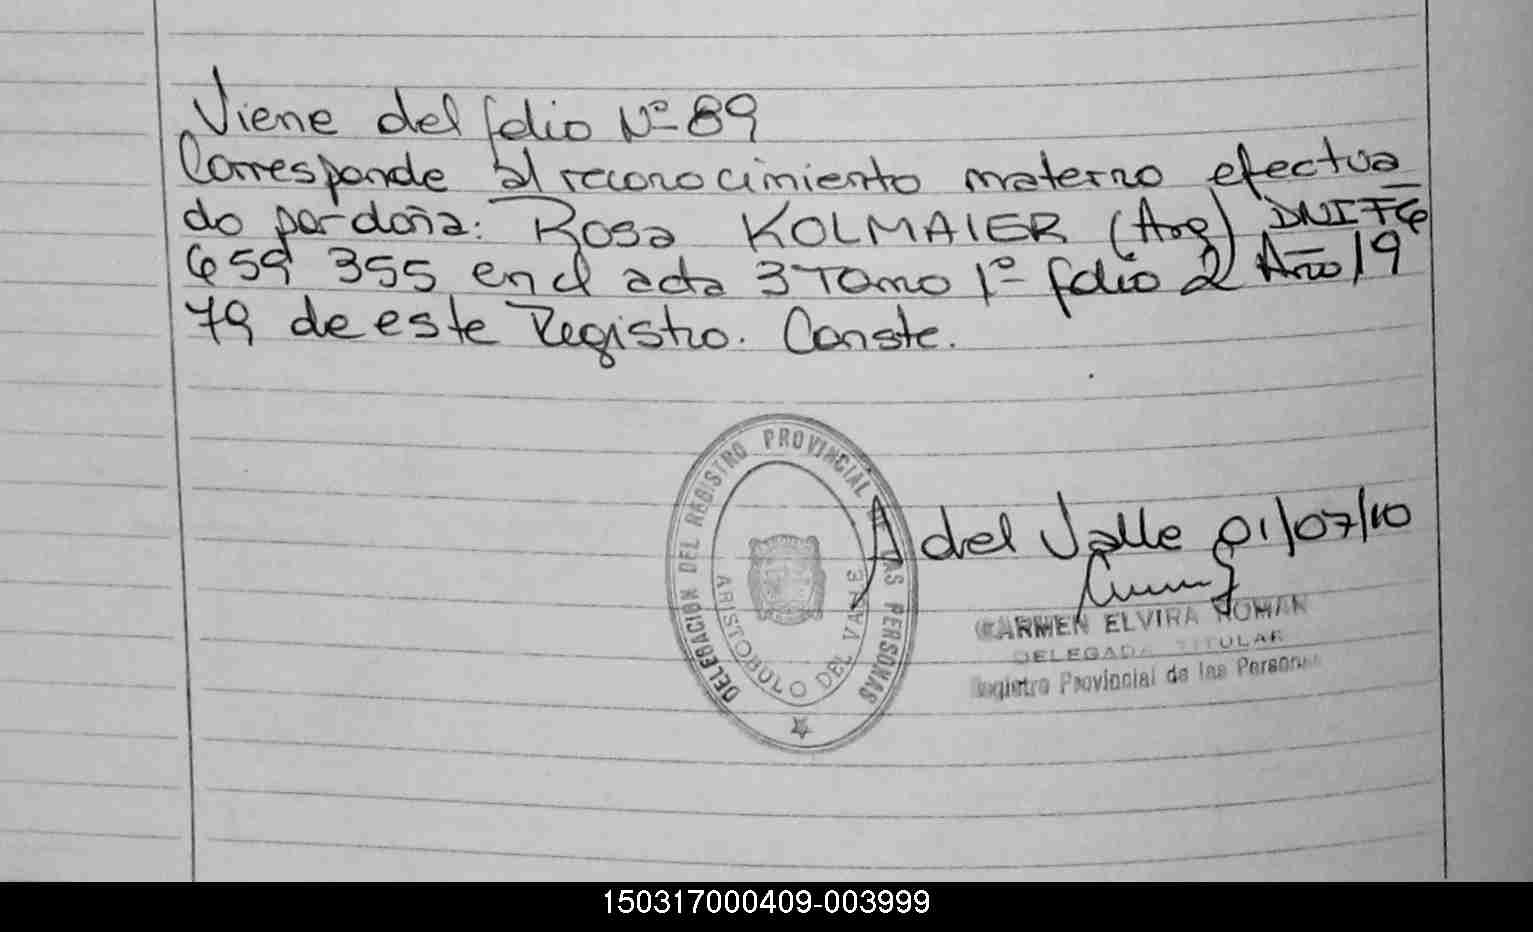 Viene del folio Nº 89
Corresponde al reconocimiento materno efectua
do por doña: Rosa KOLMAIER (Arg) DNI F6
659 355 en el acta 3 Tomo 1º folio 2 Año 19
79 de este Registro. Conste.
DELEGACION DEL REGISTRO PROVINCIAL LAS PERSONAS
ARISTOBULO DEL VALLE
A del Valle 01/07/10
CARMEN ELVIRA ROMAN
DELEGADA TITULAR
Registro Provincial de las Personas
150317000409-003999